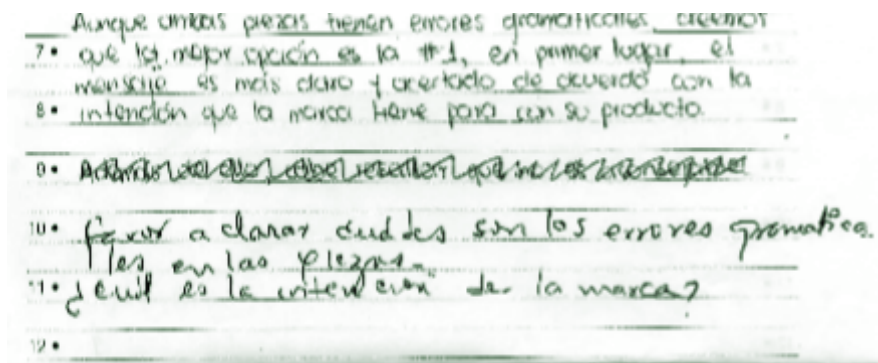 Aunque ambas piezas tienen errores gramaticales, creemos
7• que la mejor opción es la #1, en primer lugar, el
mensaje es más claro y acertado de acuerdo con la
8• intención que la marca tiene para con su producto.
9•
10• favor aclarar cuáles son los errores gramatica
les en las piezas.
11• ¿cuál es la intención de la marca?
12•